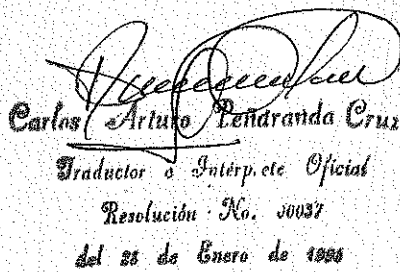 Carlos Arturo Peñaranda Cruz
Traductor o Intérprete Oficial
Resolución No. 00037
del 25 de Enero de 1996